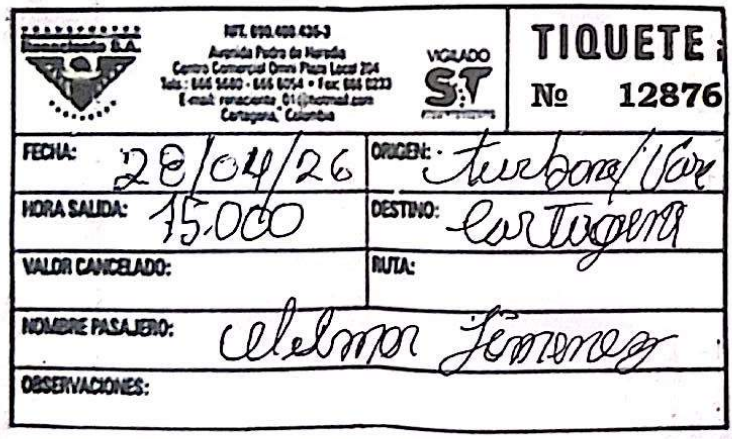 Renaciente S.A.
NIT. 890.400.435-3
Avenida Pedro de Heredia
Centro Comercial Omni Plaza Local 204
Tels.: 666 5680 - 666 6054 • Fax: 666 0233
E-mail: renaciente_01@hotmail.com
Cartagena, Colombia
VIGILADO
ST
TIQUETE
Nº 12876
FECHA: 28/04/26
ORIGEN: turbana/
HORA SALIDA: 15.000
DESTINO: Cartagena
VALOR CANCELADO:
RUTA:
NOMBRE PASAJERO: Jimenez
OBSERVACIONES: